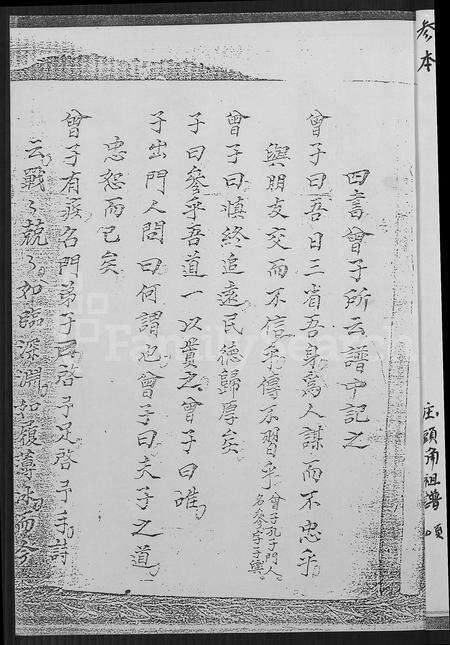 參本
庄頭角祖譜
四書曾子所云譜中記之
曾子曰吾日三省吾身為人謀而不忠乎
與朋友交而不信乎傳不習乎曾子孔子門人
名參字子輿
曾子曰慎終追遠民德歸厚矣
子曰參乎吾道一以貫之曾子曰唯
子出門人問曰何謂也曾子曰夫子之道
忠恕而已矣
曾子有疾召門弟子曰啓予足啓予手詩
云戰々兢々如臨深淵如履薄冰而今
FamilySearch